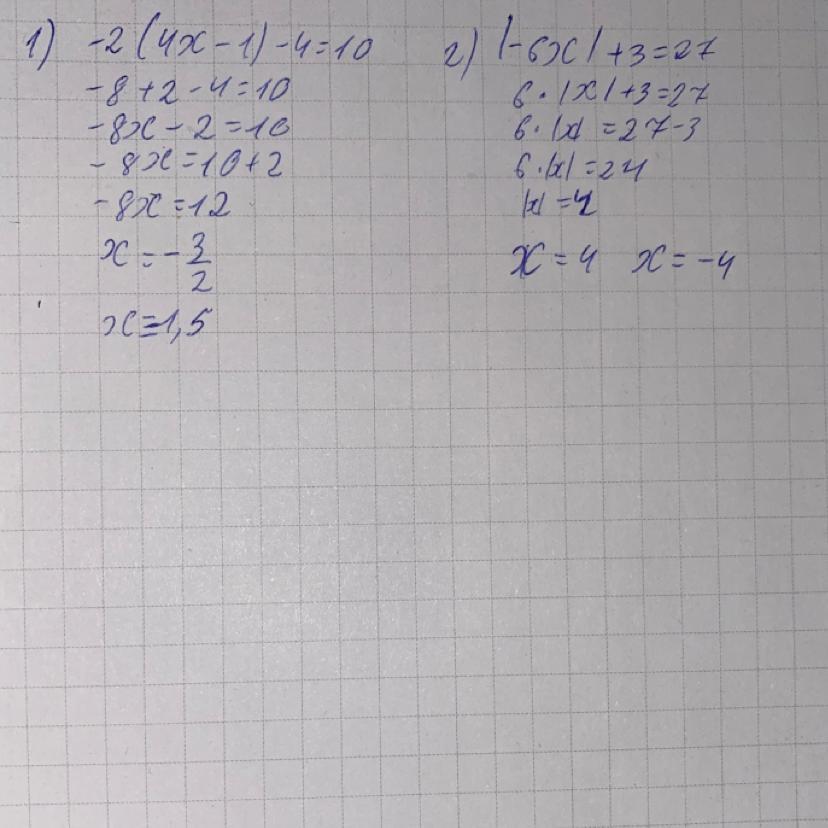 1) -2(4x-1)-4=10
-8+2-4=10
-8x-2=10
-8x=10+2
-8x=12
x=-3/2
x=-1,5
2) |-6x|+3=27
6·|x|+3=27
6·|x|=27-3
6·|x|=24
|x|=4
x=4 x=-4